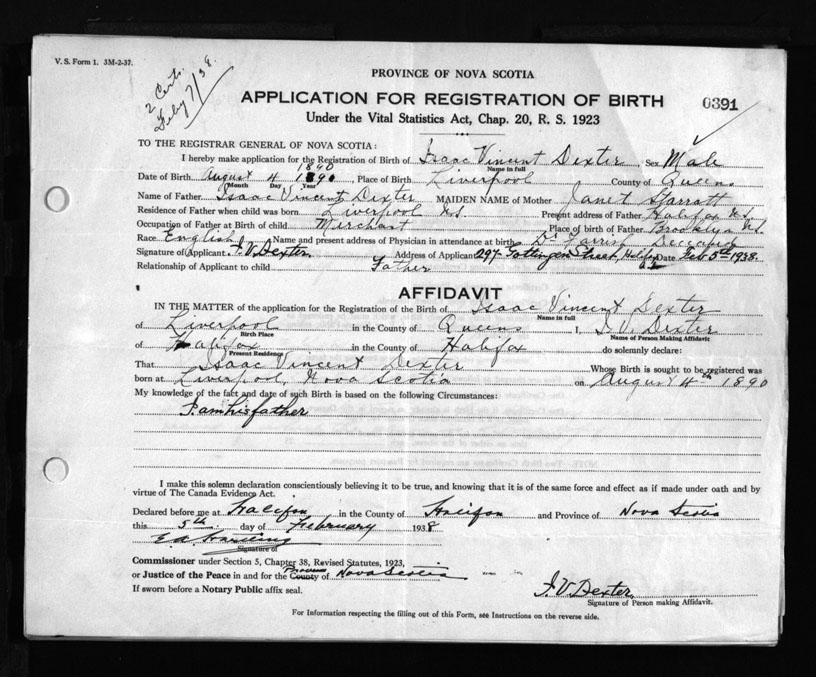 V. S. Form 1. 3M-2-37.
2 Certs.
Feby 7/38.
PROVINCE OF NOVA SCOTIA
APPLICATION FOR REGISTRATION OF BIRTH
0391
Under the Vital Statistics Act, Chap. 20, R. S. 1923
TO THE REGISTRAR GENERAL OF NOVA SCOTIA:
I hereby make application for the Registration of Birth of Isaac Vincent Dexter Sex Male
Name in full
1890
Date of Birth August 4 1890, Place of Birth Liverpool County of Queens
Month Day Year
Name of Father Isaac Vincent Dexter MAIDEN NAME of Mother Janet Harratt
Residence of Father when child was born Liverpool N.S. Present address of Father Halifax N.S.
Occupation of Father at Birth of child Merchant Place of birth of Father Brooklyn N.S.
Race English Name and present address of Physician in attendance at birth Dr Farrish Deceased
Signature of Applicant I. V. Dexter. Address of Applicant 297 Gottingen Street, Halifax Date Feb 5th 1938.
Relationship of Applicant to child Father
AFFIDAVIT
IN THE MATTER of the application for the Registration of the Birth of Isaac Vincent Dexter
Name in full
of Liverpool in the County of Queens I, I. V. Dexter
Birth Place Name of Person Making Affidavit
of Halifax in the County of Halifax do solemnly declare:
Present Residence
That Isaac Vincent Dexter Whose Birth is sought to be registered was
born at Liverpool, Nova Scotia on August 4th 1890
My knowledge of the fact and date of such Birth is based on the following Circumstances:
I am his father
I make this solemn declaration conscientiously believing it to be true, and knowing that it is of the same force and effect as if made under oath and by
virtue of The Canada Evidence Act.
Declared before me at Halifax in the County of Halifax and Province of Nova Scotia
this 5th day of February 1938
E. A.
Signature of
Commissioner under Section 5, Chapter 38, Revised Statutes, 1923,
Province
or Justice of the Peace in and for the County of Nova Scotia
I. V. Dexter.
If sworn before a Notary Public affix seal.
Signature of Person making Affidavit.
For Information respecting the filling out of this Form, see Instructions on the reverse side.